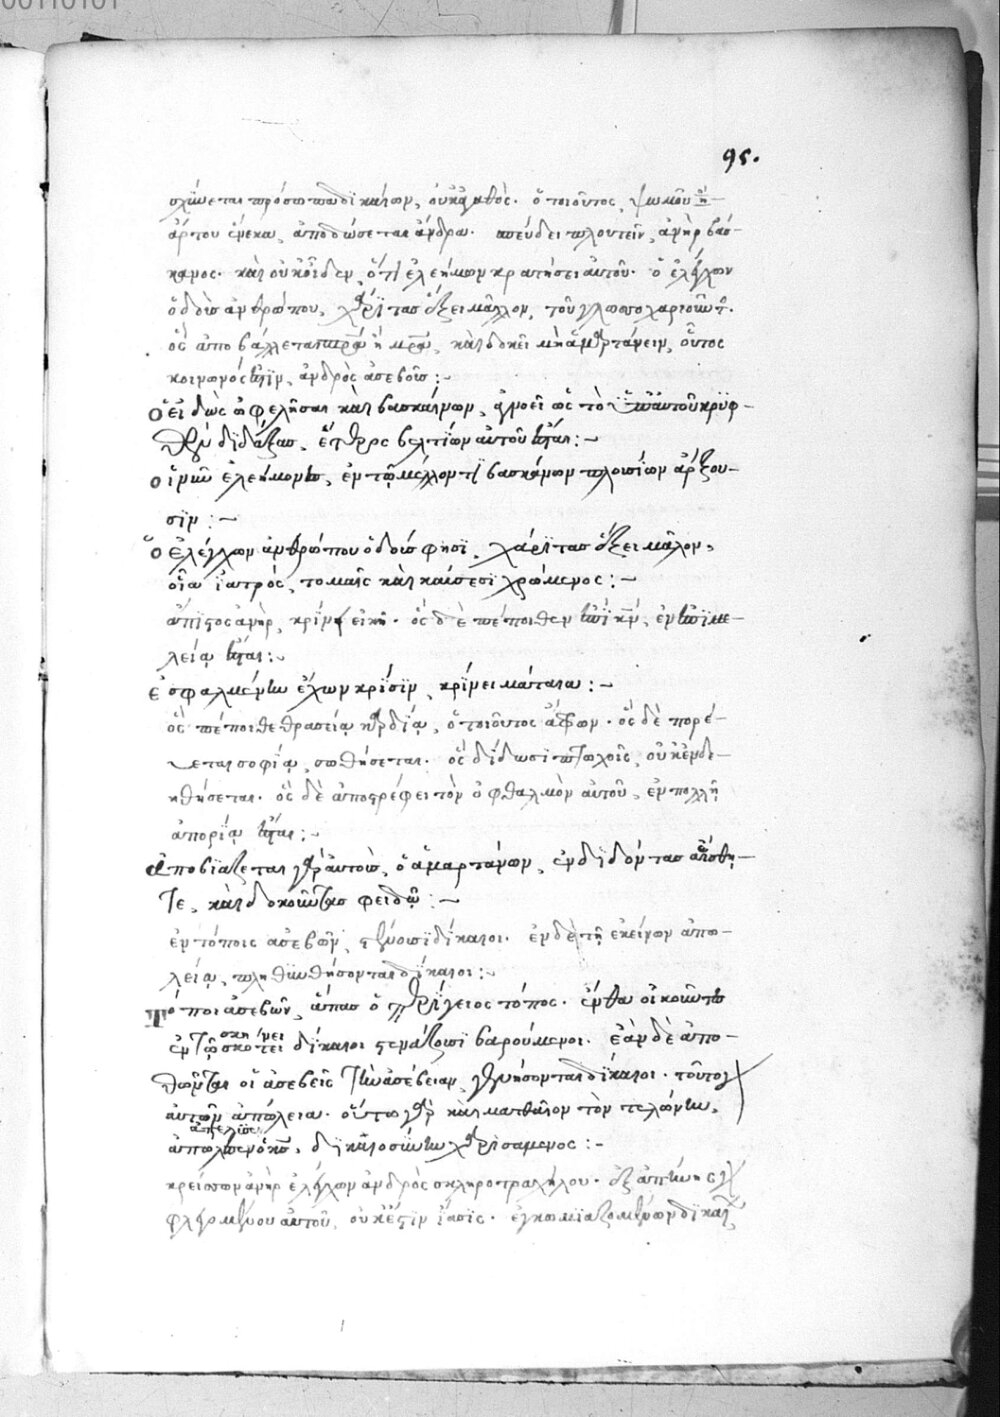 00110101
95.
σχύνεται πρόσωπα δικαίων, οὐκ ἀγαθός. ὁ τοιοῦτος, ψωμοῦ ἢ
ἄρτου ἕνεκα, ἀποδώσεται ἄνδρα. σπεύδει πλουτεῖν ἀνὴρ βάσ-
κανος. καὶ οὐκ οἶδεν, ὅτι ἐλεήμων κρατήσει αὐτοῦ. ὁ ἐλέγχων
ὁδοὺς ἀνθρώπου, χάριτας ἕξει μᾶλλον, τοῦ γλωσσοχαριτοῦντ.
ὃς ἀποβάλλεται πρα ἢ μρα, καὶ δοκεῖ μὴ ἁμαρτάνειν, οὗτος
κοινωνός ἐστιν, ἀνδρὸς ἀσεβοῦς:~
Ὁ εἰδὼς ὠφελῆσαι καὶ βασκαίνων, ἀγνοεῖ ὡς τὸ ὑπ' αὐτοῦ κρυφ-
θὲν διδάξας, ἕτερος βελτίων αὐτοῦ ἔσται:~
Οἱ νῦν ἐλεήμονες, ἐν τῷ μέλλοντι βασκάνων πλουσίων ἄρξου-
σιν:~
Ὁ ἐλέγχων ἀνθρώπου ὁδούς φησι, χάριτας ἕξει μᾶλλον,
οἷα ἰατρός, τομαῖς καὶ καύσεσι χρώμενος:~
ἄπιστος ἀνὴρ, κρίνει εἰκῆ. ὃς δὲ πέποιθεν ἐπὶ κν, ἐν ἐπιμε-
λείᾳ ἔσται:~
Ἐσφαλμένην ἔχων κρίσιν, κρίνει μάταια:~
ὃς πέποιθε θρασείᾳ καρδίᾳ, ὁ τοιοῦτος ἄφρων. ὃς δὲ πορεύ-
εται σοφίᾳ, σωθήσεται. ὃς δίδωσι πτωχοῖς, οὐκ ἐνδε-
ηθήσεται. ὃς δὲ ἀποστρέφει τὸν ὀφθαλμὸν αὐτοῦ, ἐν πολλῇ
ἀπορίᾳ ἔσται:~
Ἀποβιάζεται γὰρ αὐτοὺς, ὁ ἁμαρτάνων, ἐνδιδόντας
τε, καὶ δοκοῦντας φειδ:~
ἐν τόποις ἀσεβῶν, στένουσι δίκαιοι. ἐν δὲ τῇ ἐκείνων ἀπω-
λείᾳ, πληθυνθήσονται δίκαιοι:~
Τόποι ἀσεβῶν, ἅπας ὁ περίγειος τόπος. ἔνθα οἰκοῦντες
ἐν τῷ σκήνει
σκότει δίκαιοι στενάζουσι βαρούμενοι. ἐὰν δὲ ἀπο-
θῶνται οἱ ἀσεβεῖς τὴν ἀσέβειαν, γενήσονται δίκαιοι. τοῦτο γὰρ
αὐτῶν ἀπώλεια. οὕτω γὰρ καὶ ματθαῖον τὸν τελώνην,
ἀπώλεσεν ὁ κς, δικαιοσύνην χαρισάμενος:~
κρείσσων ἀνὴρ ἐλέγχων ἀνδρὸς σκληροτραχήλου. ἐξαπίνης γὰρ
φλεγομένου αὐτοῦ, οὐκ ἔστιν ἴασις. ἐγκωμιαζομένων δικαί